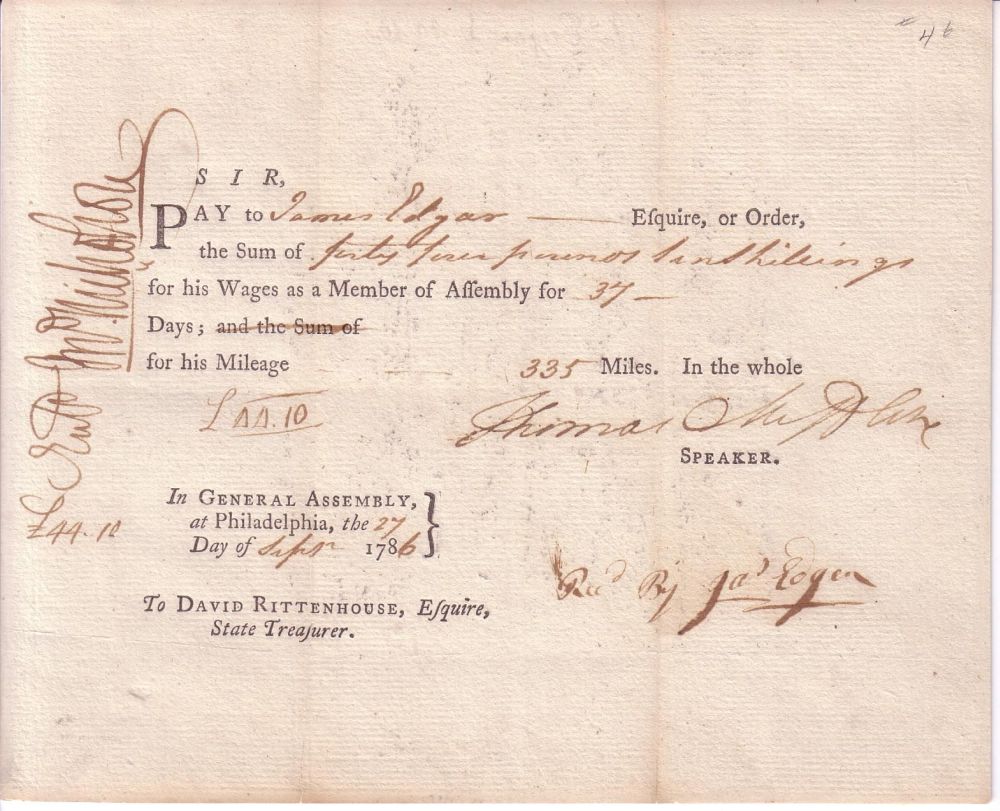 4 6
SIR,
PAY to James Edgar — Eſquire, or Order,
the Sum of forty four pounds ten shillings
for his Wages as a Member of Aſſembly for 37 —
Days; and the Sum of
for his Mileage 335 Miles. In the whole
£44.10
Thomas
SPEAKER.
In GENERAL ASSEMBLY,
at Philadelphia, the 27
Day of Septr 1786
To DAVID RITTENHOUSE, Eſquire,
State Treaſurer.
Recd By Jas Edgar
£44.10